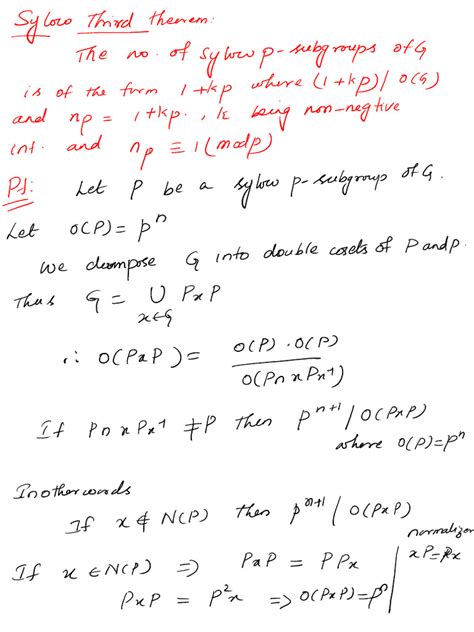 Sylow Third theorem:
The no. of sylow p-subgroups of G
is of the form 1+kp where (1+kp)/ O(G)
and n_p = 1+kp., k being non-negtive
int. and n_p ≡ 1 (mod p)
Pf: Let P be a sylow p-subgroup of G.
Let O(P) = p^n
We decompose G into double cosets of P and P.
Thus G = ∪_{x∈G} PxP
∴ O(PxP) = O(P) . O(P) / O(P∩xPx^-1)
If P∩xPx^-1 ≠ P then p^{n+1} / O(PxP)
where O(P)=p^n
In other words
If x ∉ N(P) then p^{n+1} / O(PxP)
normalizer
If x ∈ N(P) ⇒ PxP = PPx
xP=Px
PxP = P^2x ⇒ O(PxP)=p^n